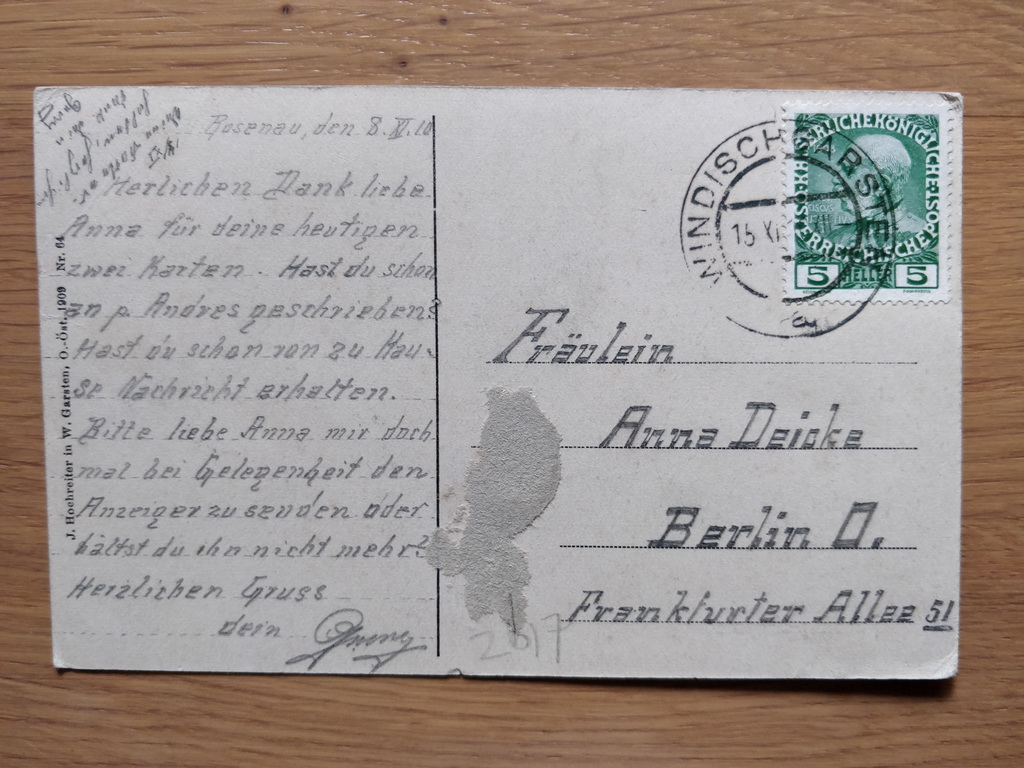 Rosenau, den 8. XI. 10
Herlichen Dank liebe
Anna für deine heutigen
zwei Karten. Hast du schon
an p. Andres geschrieben?
Hast du schon von zu Hau-
se Nachricht erhalten.
Bitte liebe Anna mir doch
mal bei Gelegenheit den
Anzeiger zu senden oder
hältst du ihn nicht mehr?
Herzlichen Gruss
dein
J. Hochreiter in W. Garsten, O.-Öst. 1909 Nr. 64
WINDISCHGARSTEN
15 XI
KAISERLICHEKÖNIGLICHE
ÖSTERREICHISCHEPOST
5 HELLER 5
Fräulein
Anna Deicke
Berlin O.
Frankfurter Allee 51
2617